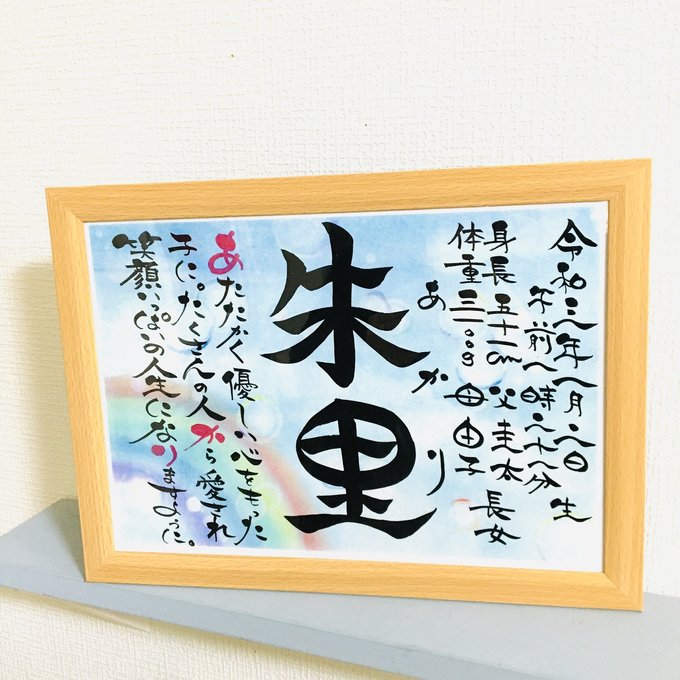 令和三年八月日生
午前八時二十八分
身長五十一cm 父圭太 長女
体重三一〇〇g 母由子
あかり
朱里
あたたかく優しい心をもった
子に。たくさんの人から愛され
笑顔いっぱいの人生になりますように。